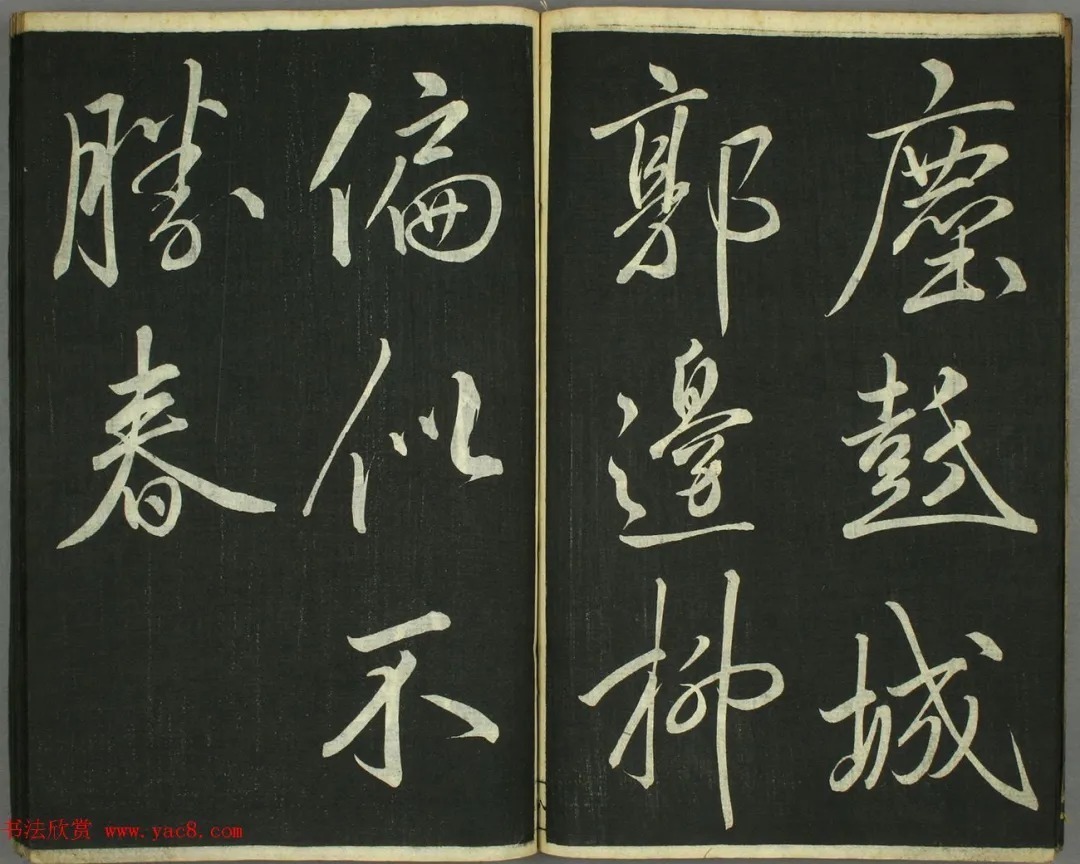 塵 城
郭邊柳
偏似不
勝春
书法欣赏 www.yac8.com